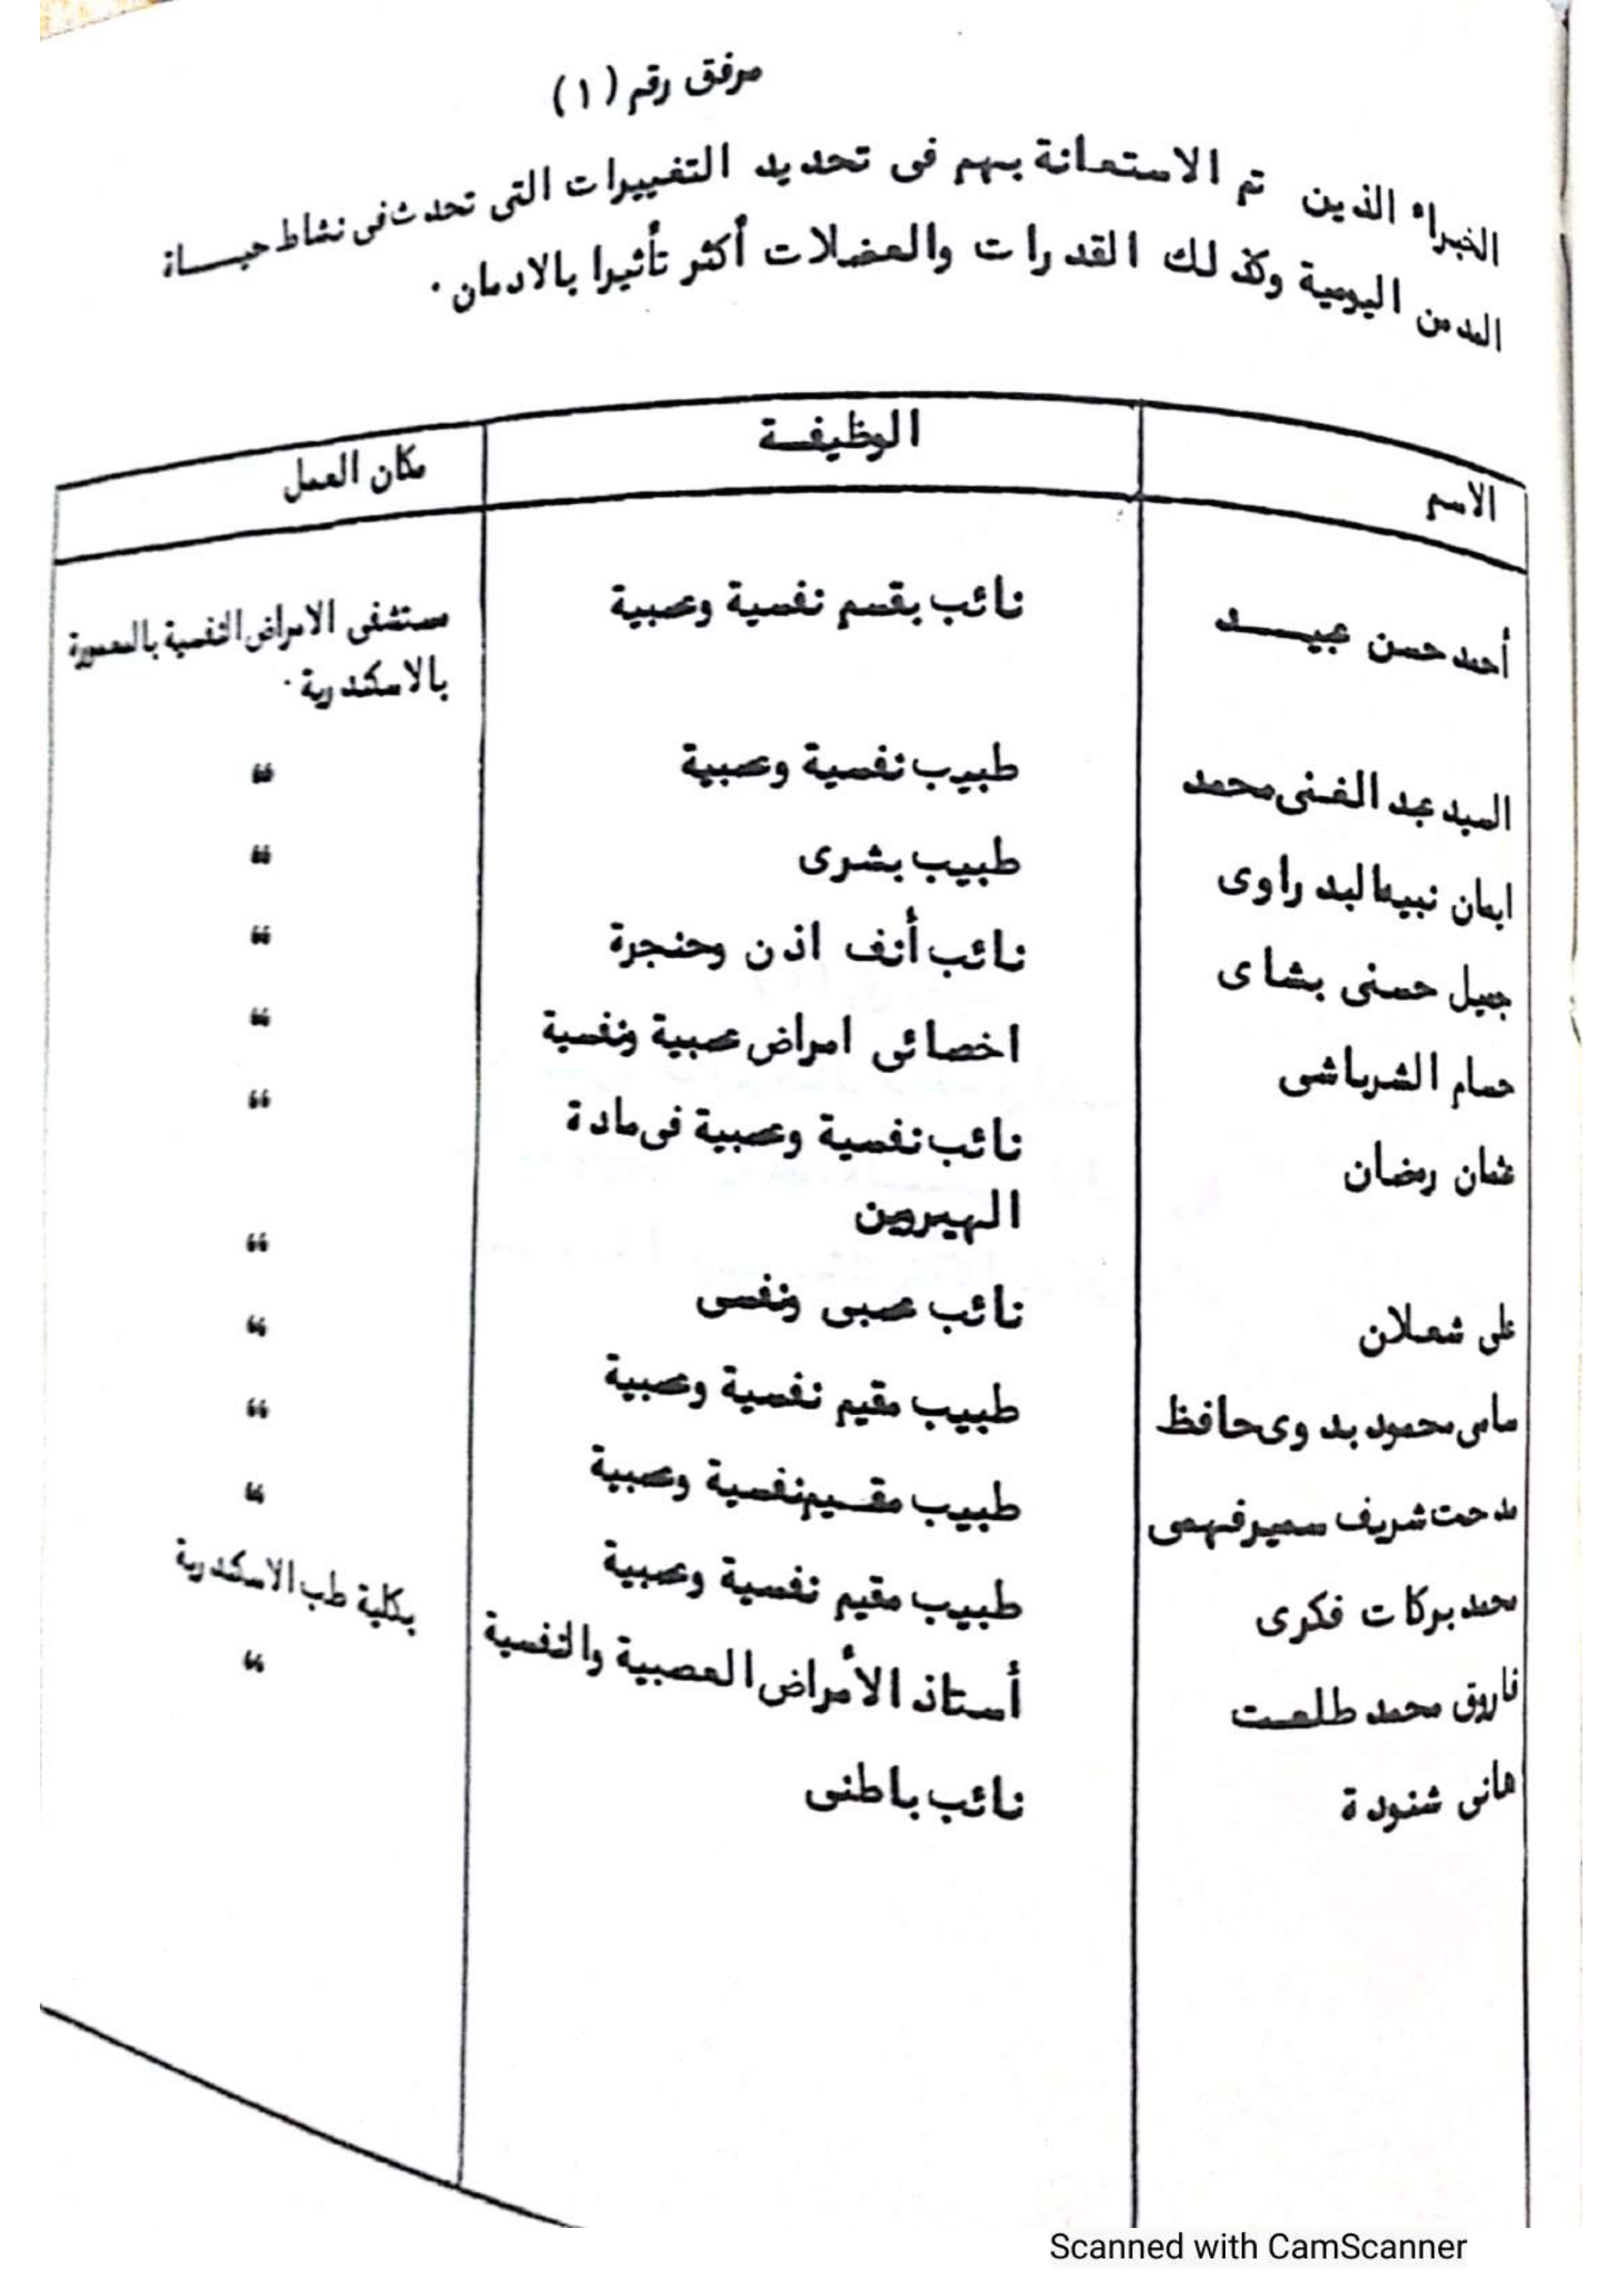 مرفق رقم (١)
الخبراء الذين تم الاستعانة بهم فى تحديد التغييرات التى تحدث فى نشاط حيــاة
المدمن اليومية وكذلك القدرات والعضلات أكثر تأثيرا بالادمان .
الاسم الوظيفــة مكان العمل
أحمد حسن عبيــــد نائب بقسم نفسية وعصبية مستشفى الامراض النفسية بالمعمورة
بالاسكندرية .
السيد عبد الغنى محمد طبيب نفسية وعصبية “
ايمان نبيه البدراوى طبيب بشرى “
جميل حسنى بشاى نائب أنف اذن وحنجرة “
حسام الشرباشى اخصائى امراض عصبية ونفسية “
عثمان رمضان نائب نفسية وعصبية فى مادة “
الهيروين
على شعلان نائب عصبى ونفسى “
سامى محمود بدوى حافظ طبيب مقيم نفسية وعصبية “
مدحت شريف سمير فهمى طبيب مقــيم نفسية وعصبية “
محمد بركات فكرى طبيب مقيم نفسية وعصبية “
فاروق محمد طلعــت أستاذ الأمراض العصبية والنفسية بكلية طب الاسكندرية
هانى شنودة نائب باطنى “
Scanned with CamScanner